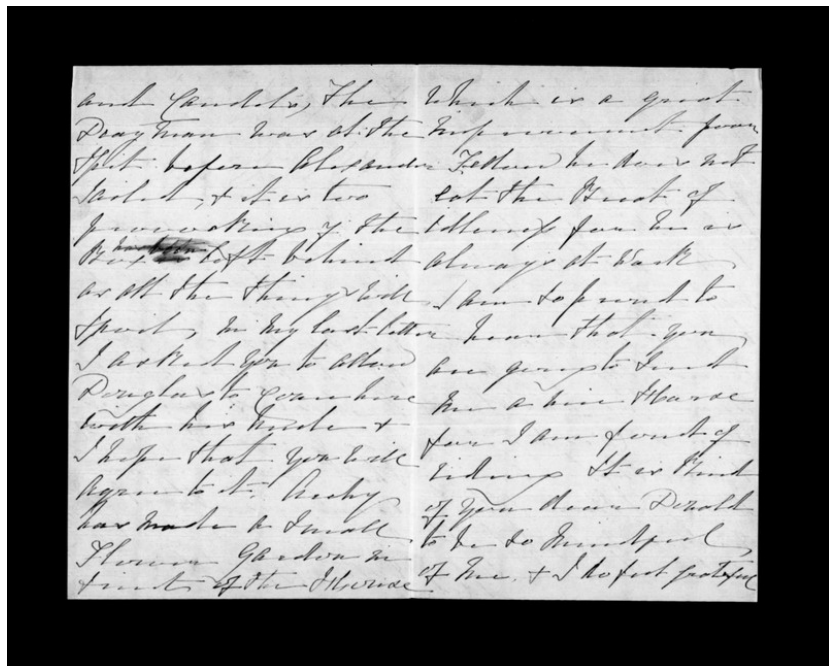 and Candles, The
Drayman was at the
Spit before Alexander
Sailed, & it is two
provoking if the
Box left behind
as all the things will
spoil, in my last letter
I asked you to allow
Douglas to come here
with his Uncle &
I hope that you will
agree to it. Archy
has made a small
Flower Garden in
front of the House
which is a great
improvement poor
Fellow he does not
eat the Bread of
Idleness for he is
always at Work
I am so proud to
hear that you
are going to send
me a nice Horse
for I am fond of
riding It is Kind
of you dear Donald
to be so mindful
of me, & I do feel grateful